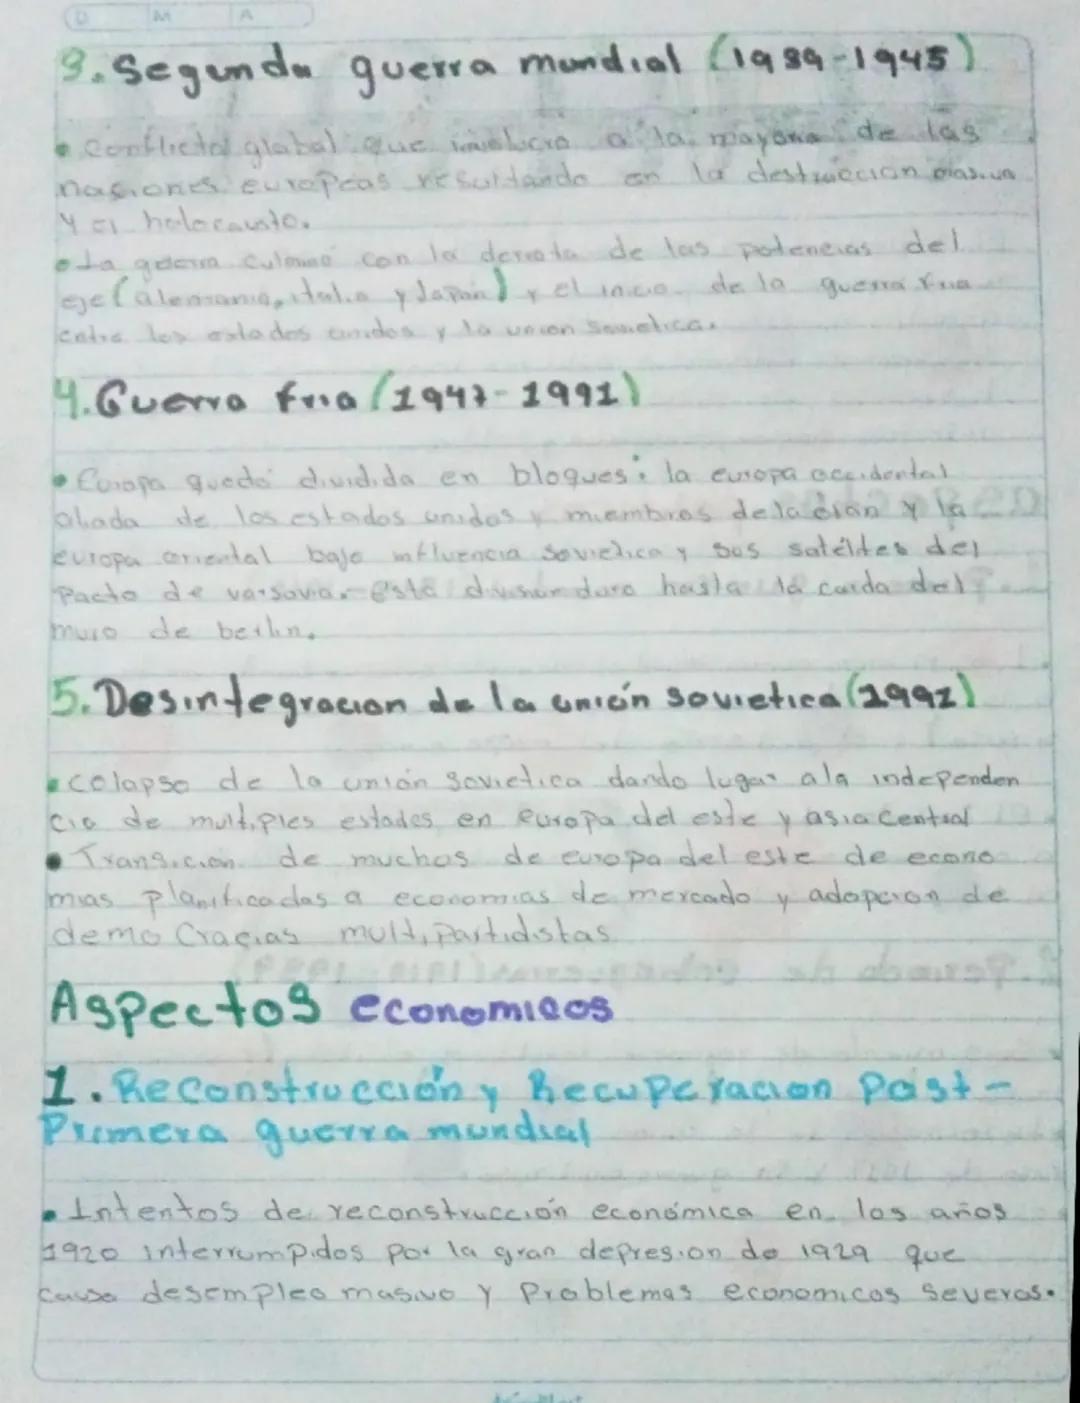 D M A
3. Segunda guerra mundial (1939-1945)
• Conflicto global que involucro a la mayoria de las
naciones europeas resultando en la destrucción masiva
y el holocausto.
• La guerra culmino con la derrota de las potencias del
eje (alemania, italia y Japon) y el inicio de la guerra fria
entre los estados unidos y la union sovietica.
4. Guerra fria (1947-1991)
• Europa quedó dividida en bloques: la europa occidental
aliada de los estados unidos y miembros de la otan y la
europa oriental bajo influencia sovietica y sus satélites del
Pacto de varsovia. esta division duro hasta la caida del
muro de berlin.
5. Desintegracion de la unión sovietica (1991)
• colapso de la unión sovietica dando lugar ala independen
cia de multiples estados en europa del este y asia Central
• Transicion de muchos de europa del este de econo
mias planificadas a economias de mercado y adopcion de
demo Cracias multipartidistas
Aspectos economicos
1. Reconstrucción y Recuperacion Post-
Primera guerra mundial
• Intentos de reconstrucción económica en los años
1920 interrumpidos por la gran depresion de 1929 que
causo desempleo masivo y Problemas economicos severos.